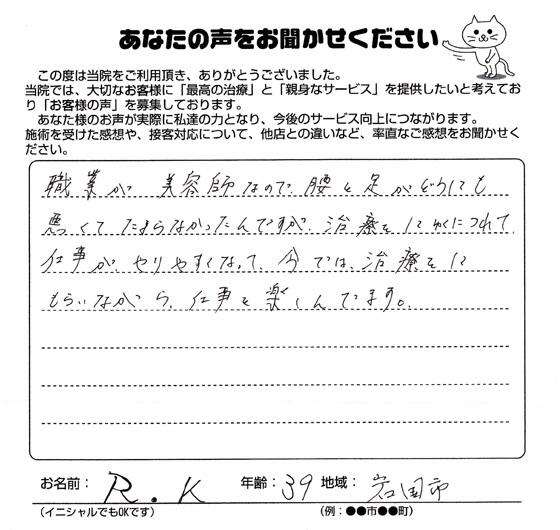 あなたの声をお聞かせください
この度は当院をご利用頂き、ありがとうございました。
当院では、大切なお客様に「最高の治療」と「親身なサービス」を提供したいと考えてお
り「お客様の声」を募集しております。
あなた様のお声が実際に私達の力となり、今後のサービス向上につながります。
施術を受けた感想や、接客対応について、他店との違いなど、率直なご感想をお聞かせく
ださい。
職業が 美容師なので、腰と足がどうにも
悪くてたまらなかったんですが、治療をしてゆくにつれて、
仕事が、やりやすくなって、今では、治療をして
もらいながら、仕事を楽しんでます。
お名前: R.K 年齢: 39 地域: 岩国市
(イニシャルでもOKです) (例:●●市●●町)